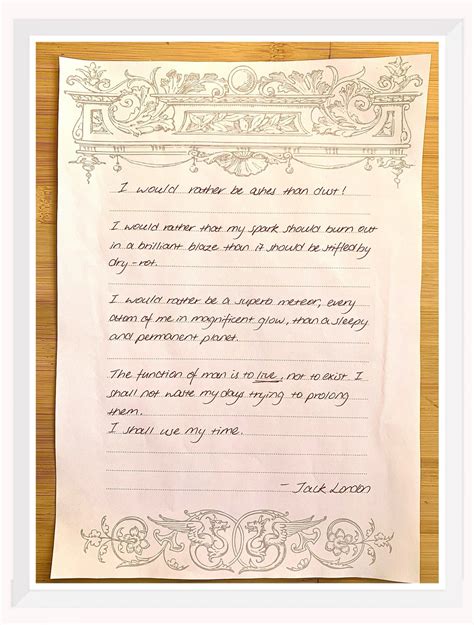 I would rather be ashes than dust!
I would rather that my spark should burn out
in a brilliant blaze than it should be stifled by
dry-rot.
I would rather be a superb meteor, every
atom of me in magnificent glow, than a sleepy
and permanent planet.
The function of man is to live, not to exist. I
shall not waste my days trying to prolong
them.
I shall use my time.
- Jack London